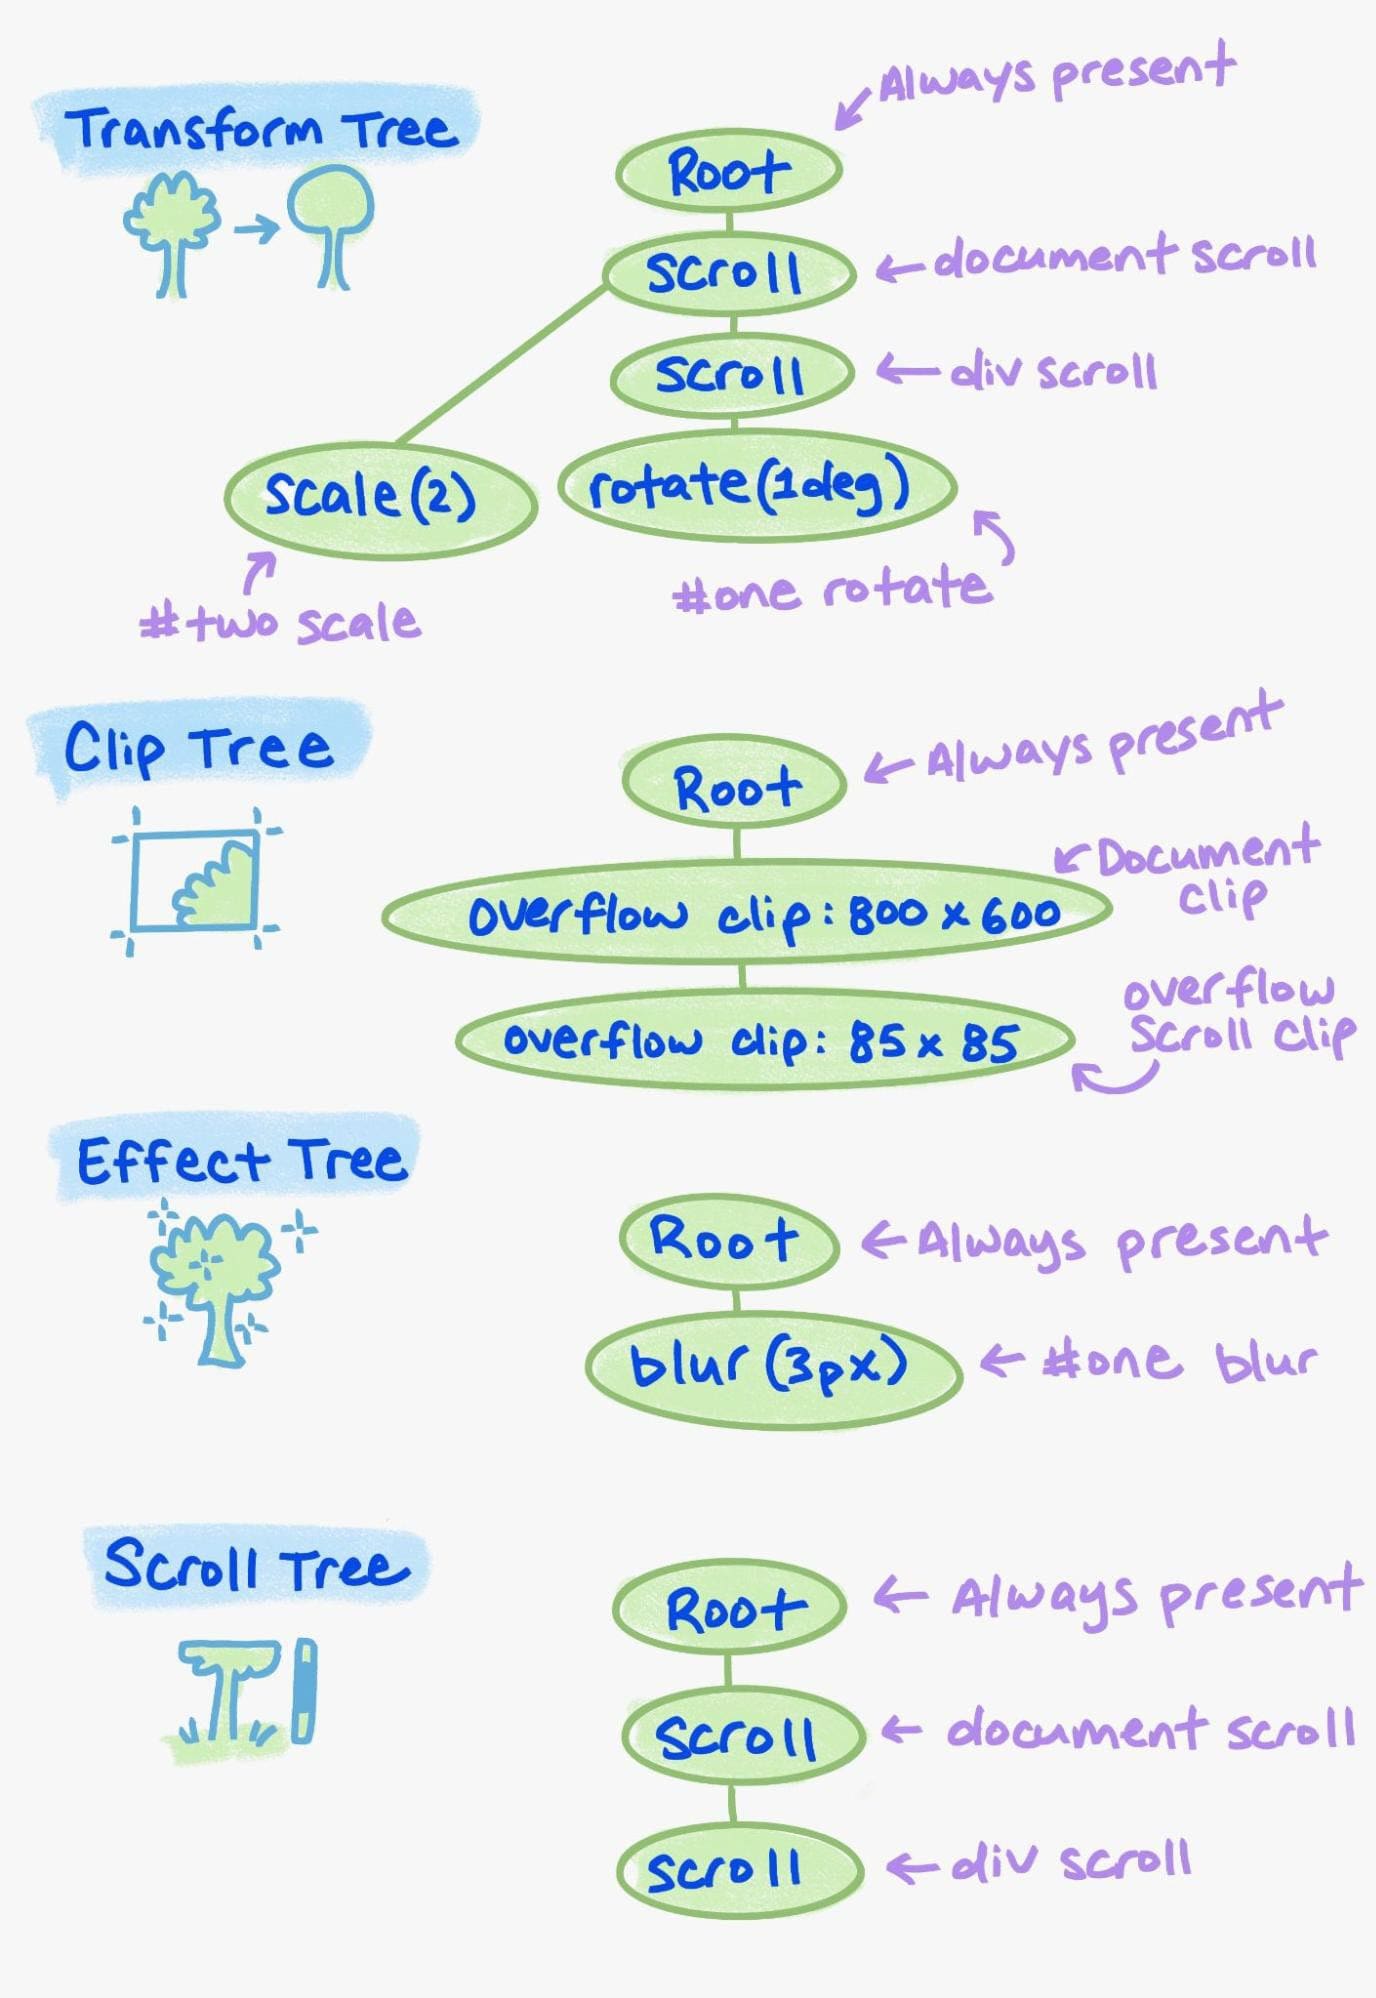 Transform Tree
Always present
Root
Scroll
document scroll
Scroll
div scroll
scale(2)
rotate(1deg)
#two scale
#one rotate
Clip Tree
Root
Always present
overflow clip: 800 x 600
Document
clip
overflow clip: 85 x 85
overflow
Scroll clip
Effect Tree
Root
Always present
blur (3px)
#one blur
Scroll Tree
Root
Always present
Scroll
document scroll
scroll
div scroll